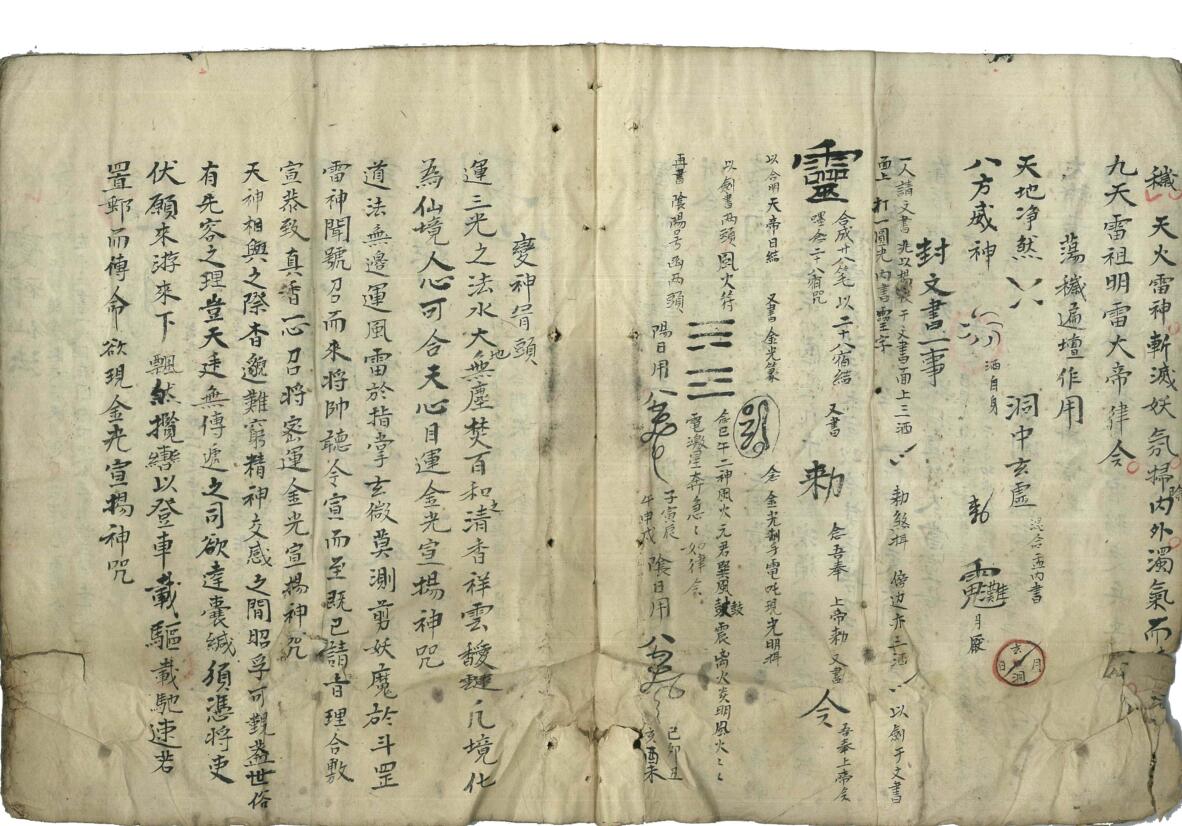 穢 天火雷神斬滅妖氛掃除內外濁氣而
九天雷祖明雷大帝律令
蕩穢遍壇作用
天地净然 洞中玄虛 混合 內書
八方威神 洒自身 勅 月厭
日 玄 洞 月
封文書一事
一人請文書 于文書面上三洒 勅煞揖 傍边亦三洒 以劍于文書
面上打一圓光內書靈字
靈 合成廿八笔 以二十八宿結 又書 勅 念吾奉 上帝勅 又書 令 吾奉上帝令
嘿念二十八宿咒
以合明天帝日結 又書金光篆 念金光剎手電吒現光明揖
以劍書两頭風火符 念巳午二神風火元君巽風鼓震离火炎明風火〻
再書陰陽号函两頭 電激星奔急〻如律令
陽日用 子寅辰午申戌 陰日用 己卯丑亥酉未
變神肙頭
運三光之法水大地無塵焚百和之清香祥雲靉靆凡境化
為仙境人心可合天心目運金光宣揚神咒
道法無邊運風雷於指掌玄微莫測剪妖魔於斗罡
雷神聞號召而來將帥聽令宣而至既已請旨理合敷
宣恭致真香一心召將密運金光宣揚神咒
天神相與之際杳邈難窮精神交感之間昭孚可觀蓋世俗
有先容之理豈天廷無傳遞之司欲達囊緘須憑將吏
伏願來游來下翾然攬轡以登車載驅載馳速若
置郵而傳命欲現金光宣揚神咒